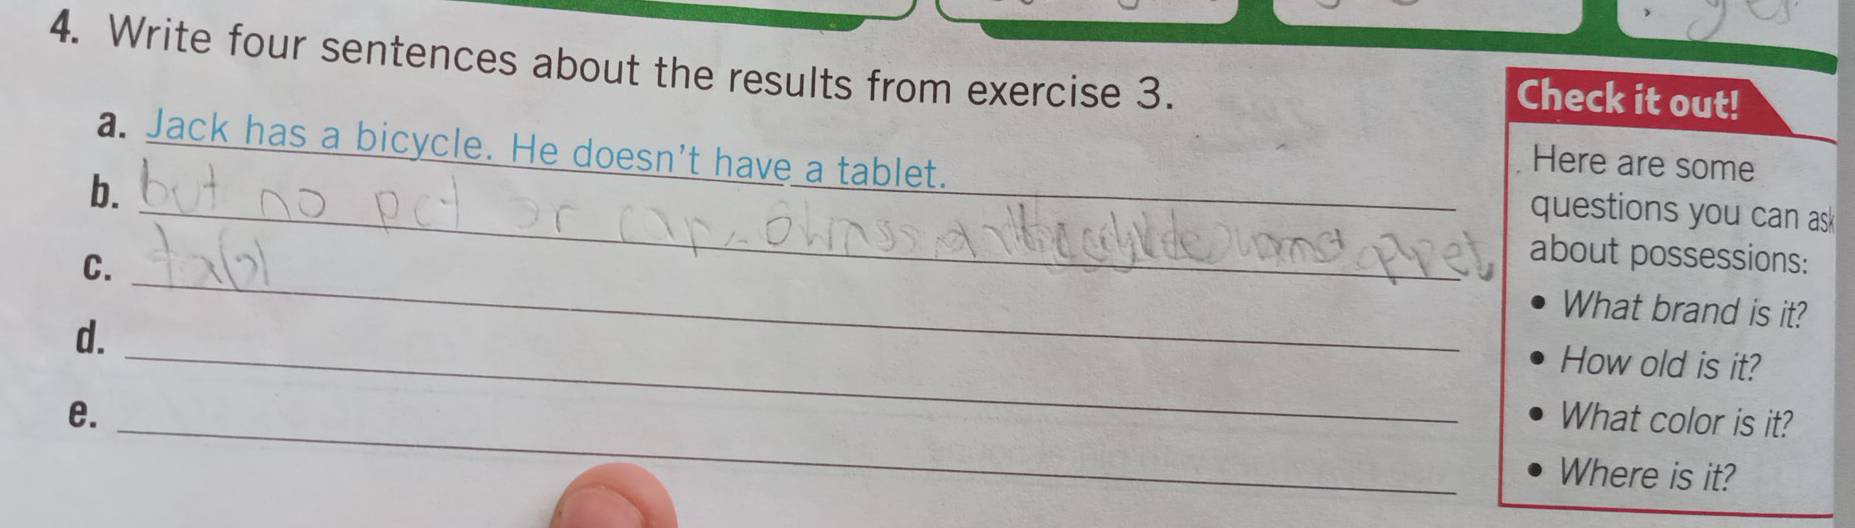 4. Write four sentences about the results from exercise 3.
a. Jack has a bicycle. He doesn't have a tablet.
b. but no pet or car
c.
d.
e.
Check it out!
Here are some
questions you can ask
about possessions:
• What brand is it?
• How old is it?
• What color is it?
• Where is it?